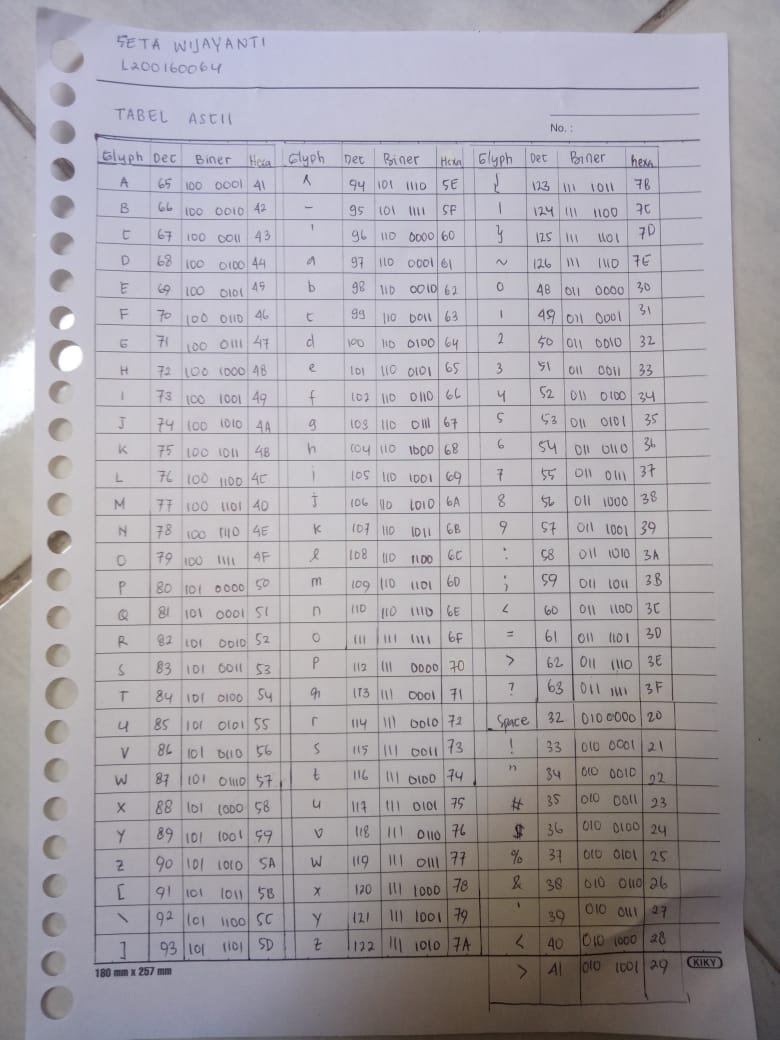 SETA WIJAYANTI
L200160064
TABEL ASCII
No. :
Glyph Dec Biner Hexa Glyph Dec Biner Hexa Glyph Dec Biner hexa
A 65 100 0001 41 ^ 94 101 1110 5E { 123 111 1011 7B
B 66 100 0010 42 - 95 101 1111 5F | 124 111 1100 7C
C 67 100 0011 43 ' 96 110 0000 60 } 125 111 1101 7D
D 68 100 0100 44 a 97 110 0001 61 ~ 126 111 1110 7E
E 69 100 0101 45 b 98 110 0010 62 0 48 011 0000 30
F 70 100 0110 46 c 99 110 0011 63 1 49 011 0001 31
G 71 100 0111 47 d 100 110 0100 64 2 50 011 0010 32
H 72 100 1000 48 e 101 110 0101 65 3 51 011 0011 33
I 73 100 1001 49 f 102 110 0110 66 4 52 011 0100 34
J 74 100 1010 4A g 103 110 0111 67 5 53 011 0101 35
K 75 100 1011 4B h 104 110 1000 68 6 54 011 0110 36
L 76 100 1100 4C i 105 110 1001 69 7 55 011 0111 37
M 77 100 1101 4D j 106 110 1010 6A 8 56 011 1000 38
N 78 100 1110 4E k 107 110 1011 6B 9 57 011 1001 39
O 79 100 1111 4F l 108 110 1100 6C : 58 011 1010 3A
P 80 101 0000 50 m 109 110 1101 6D ; 59 011 1011 3B
Q 81 101 0001 51 n 110 110 1110 6E < 60 011 1100 3C
R 82 101 0010 52 o 111 111 1111 6F = 61 011 1101 3D
S 83 101 0011 53 p 112 111 0000 70 > 62 011 1110 3E
T 84 101 0100 54 q 113 111 0001 71 ? 63 011 1111 3F
U 85 101 0101 55 r 114 111 0010 72 Space 32 010 0000 20
V 86 101 0110 56 s 115 111 0011 73 ! 33 010 0001 21
W 87 101 01110 57 t 116 111 0100 74 " 34 010 0010 22
X 88 101 1000 58 u 117 111 0101 75 # 35 010 0011 23
Y 89 101 1001 59 v 118 111 0110 76 $ 36 010 0100 24
Z 90 101 1010 5A w 119 111 0111 77 % 37 010 0101 25
[ 91 101 1011 5B x 120 111 1000 78 & 38 010 0110 26
\ 92 101 1100 5C y 121 111 1001 79 ' 39 010 0111 27
] 93 101 1101 5D z 122 111 1010 7A < 40 010 1000 28
> 41 010 1001 29
180 mm x 257 mm
KIKY